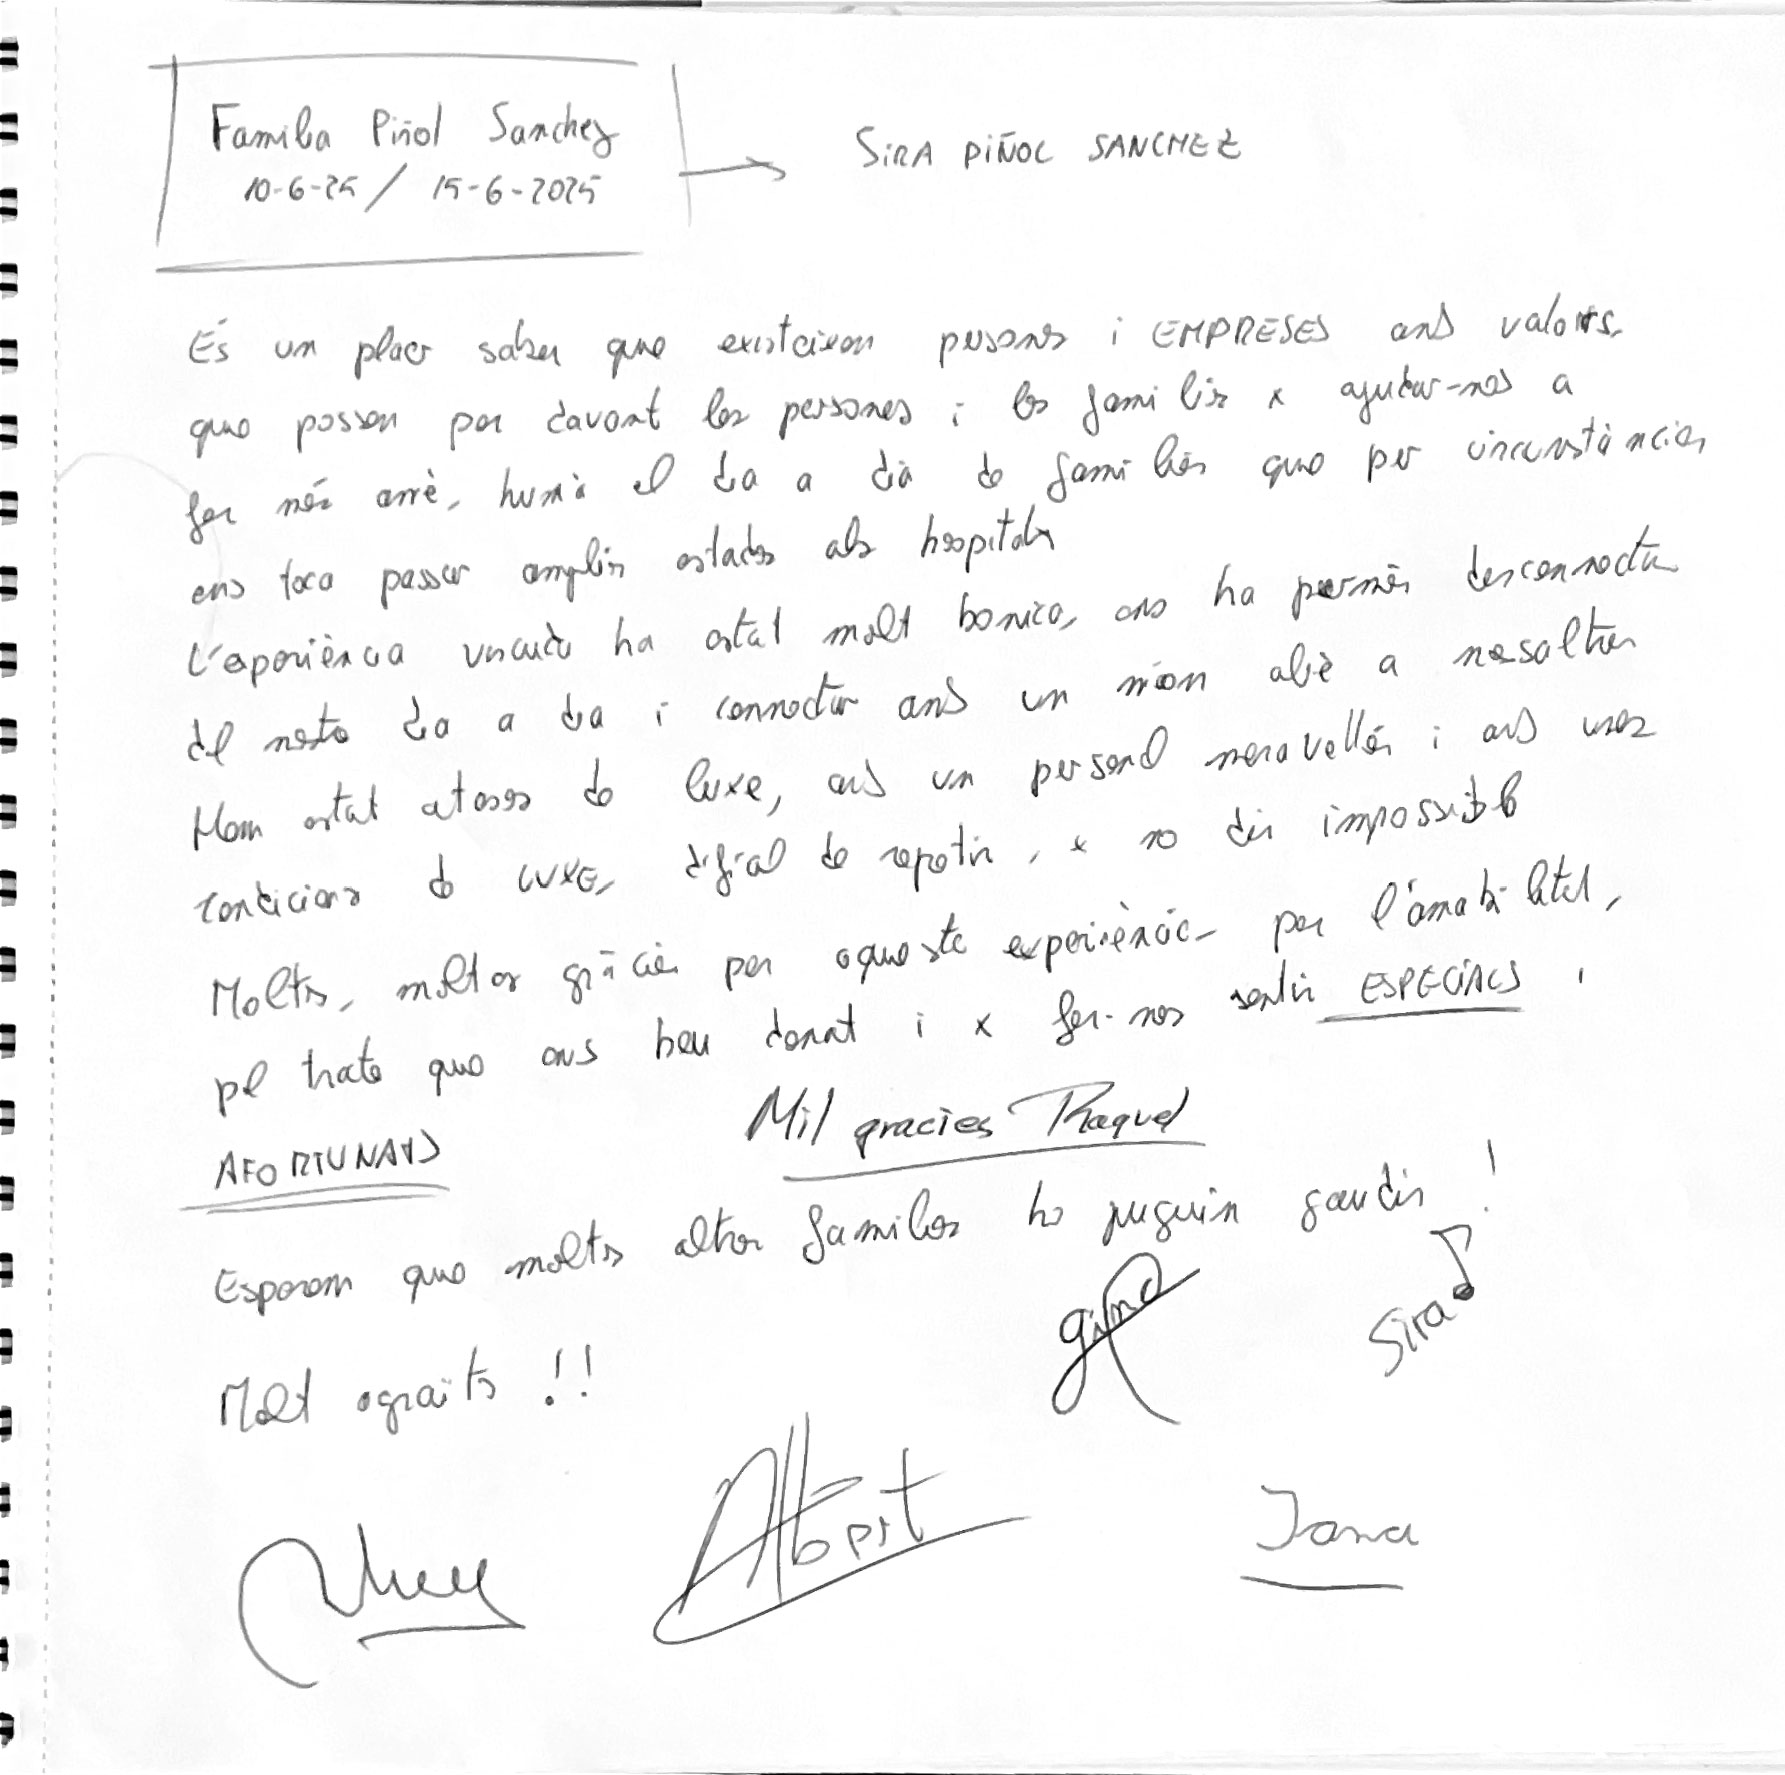 Familia Piñol Sanchez
10-6-25 / 15-6-2025
SiRA PiÑOL SANCHEZ
És un plaer saber que existeixen persones i EMPRESES amb valors,
que possen per davant les persones i les families x ajudar-nos a
fer més amè, humà el dia a dia de famílies que per circunstàncies
ens toca passar amplies estades als hospitals
L'experiència viscuda ha estat molt bonica, ens ha permès desconnectar
del nostre dia a dia i connectar amb un món aliè a nosaltres
Hem estat atesos de luxe, amb un personal meravellós i amb unes
condicions de LUXE, difícil de repetir, x no dir impossible
Moltes, moltes gràcies per aquesta experiència, per l'amabilitat,
pel trato que ens heu donat i x fer-nos sentir ESPECIALS i
AFORTUNATS
Mil gracies Raquel
Esperem que moltes altres families ho puguin gaudir !
gina
Sira
Molt agraïts !!
Albert
Jana